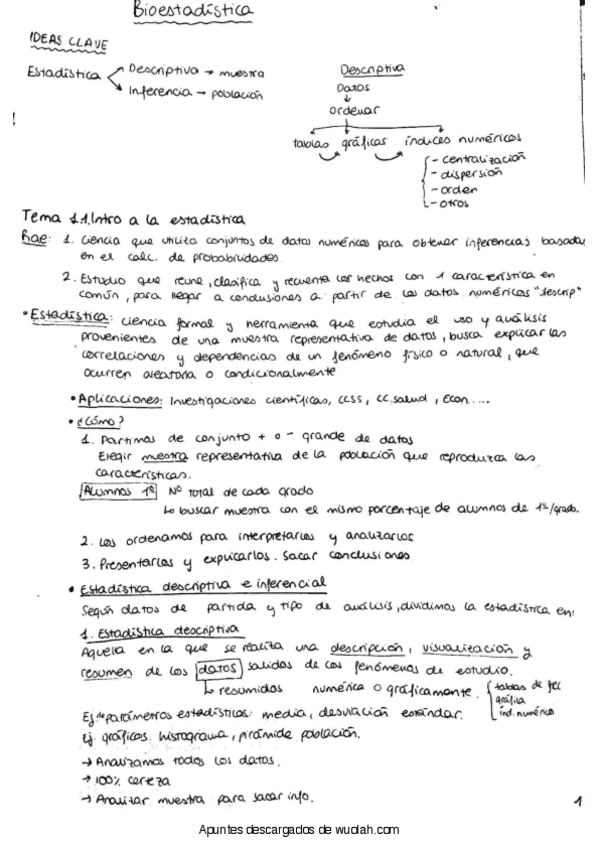 Bioestadística
IDEAS CLAVE
Estadística
Descriptiva → muestra
Inferencia → población
Descriptiva
Datos
↓
ordenar
tablas gráficas índices numéricos
- centralización
- dispersión
- orden
- otros
!
Tema 1.1. Intro a la estadística
Rae: 1. Ciencia que utiliza conjuntos de datos numéricos para obtener inferencias basadas
en el calc. de probabilidades.
2. Estudio que reune, clasifica y recuenta los hechos con 1 característica en
común, para llegar a conclusiones a partir de los datos numéricos "descrip"
• Estadística: ciencia formal y herramienta que estudia el uso y análisis
provenientes de una muestra representativa de datos, busca explicar las
correlaciones y dependencias de un fenómeno físico o natural, que
ocurren aleatoria o condicionalmente
• Aplicaciones: Investigaciones científicas, CCSS, CC.salud, Econ....
• ¿Cómo?
1. Partimos de conjunto + o - grande de datos
Elegir muestra representativa de la población que reproduzca las
características.
Alumnos 1º Nº total de cada grado
↳ buscar muestra con el mismo porcentaje de alumnos de 1º/grado.
2. Los ordenamos para interpretarlos y analizarlos
3. Presentarlos y explicarlos. Sacar conclusiones
• Estadística descriptiva e inferencial
Según datos de partida y tipo de análisis, dividimos la estadística en:
1. Estadística descriptiva
Aquella en la que se realiza una descripción, visualización y
resumen de los datos salidos de los fenómenos de estudio.
↳ resumidos numérica o gráficamente.
tablas de fec
gráfica
índ. numérico
Ej de parámetros estadísticos: media, desviación estándar.
Ej gráficos: histograma, pirámide población.
→ Analizamos todos los datos.
→ 100% certeza
→ Analizar muestra para sacar info.
1
Apuntes descargados de wuolah.com